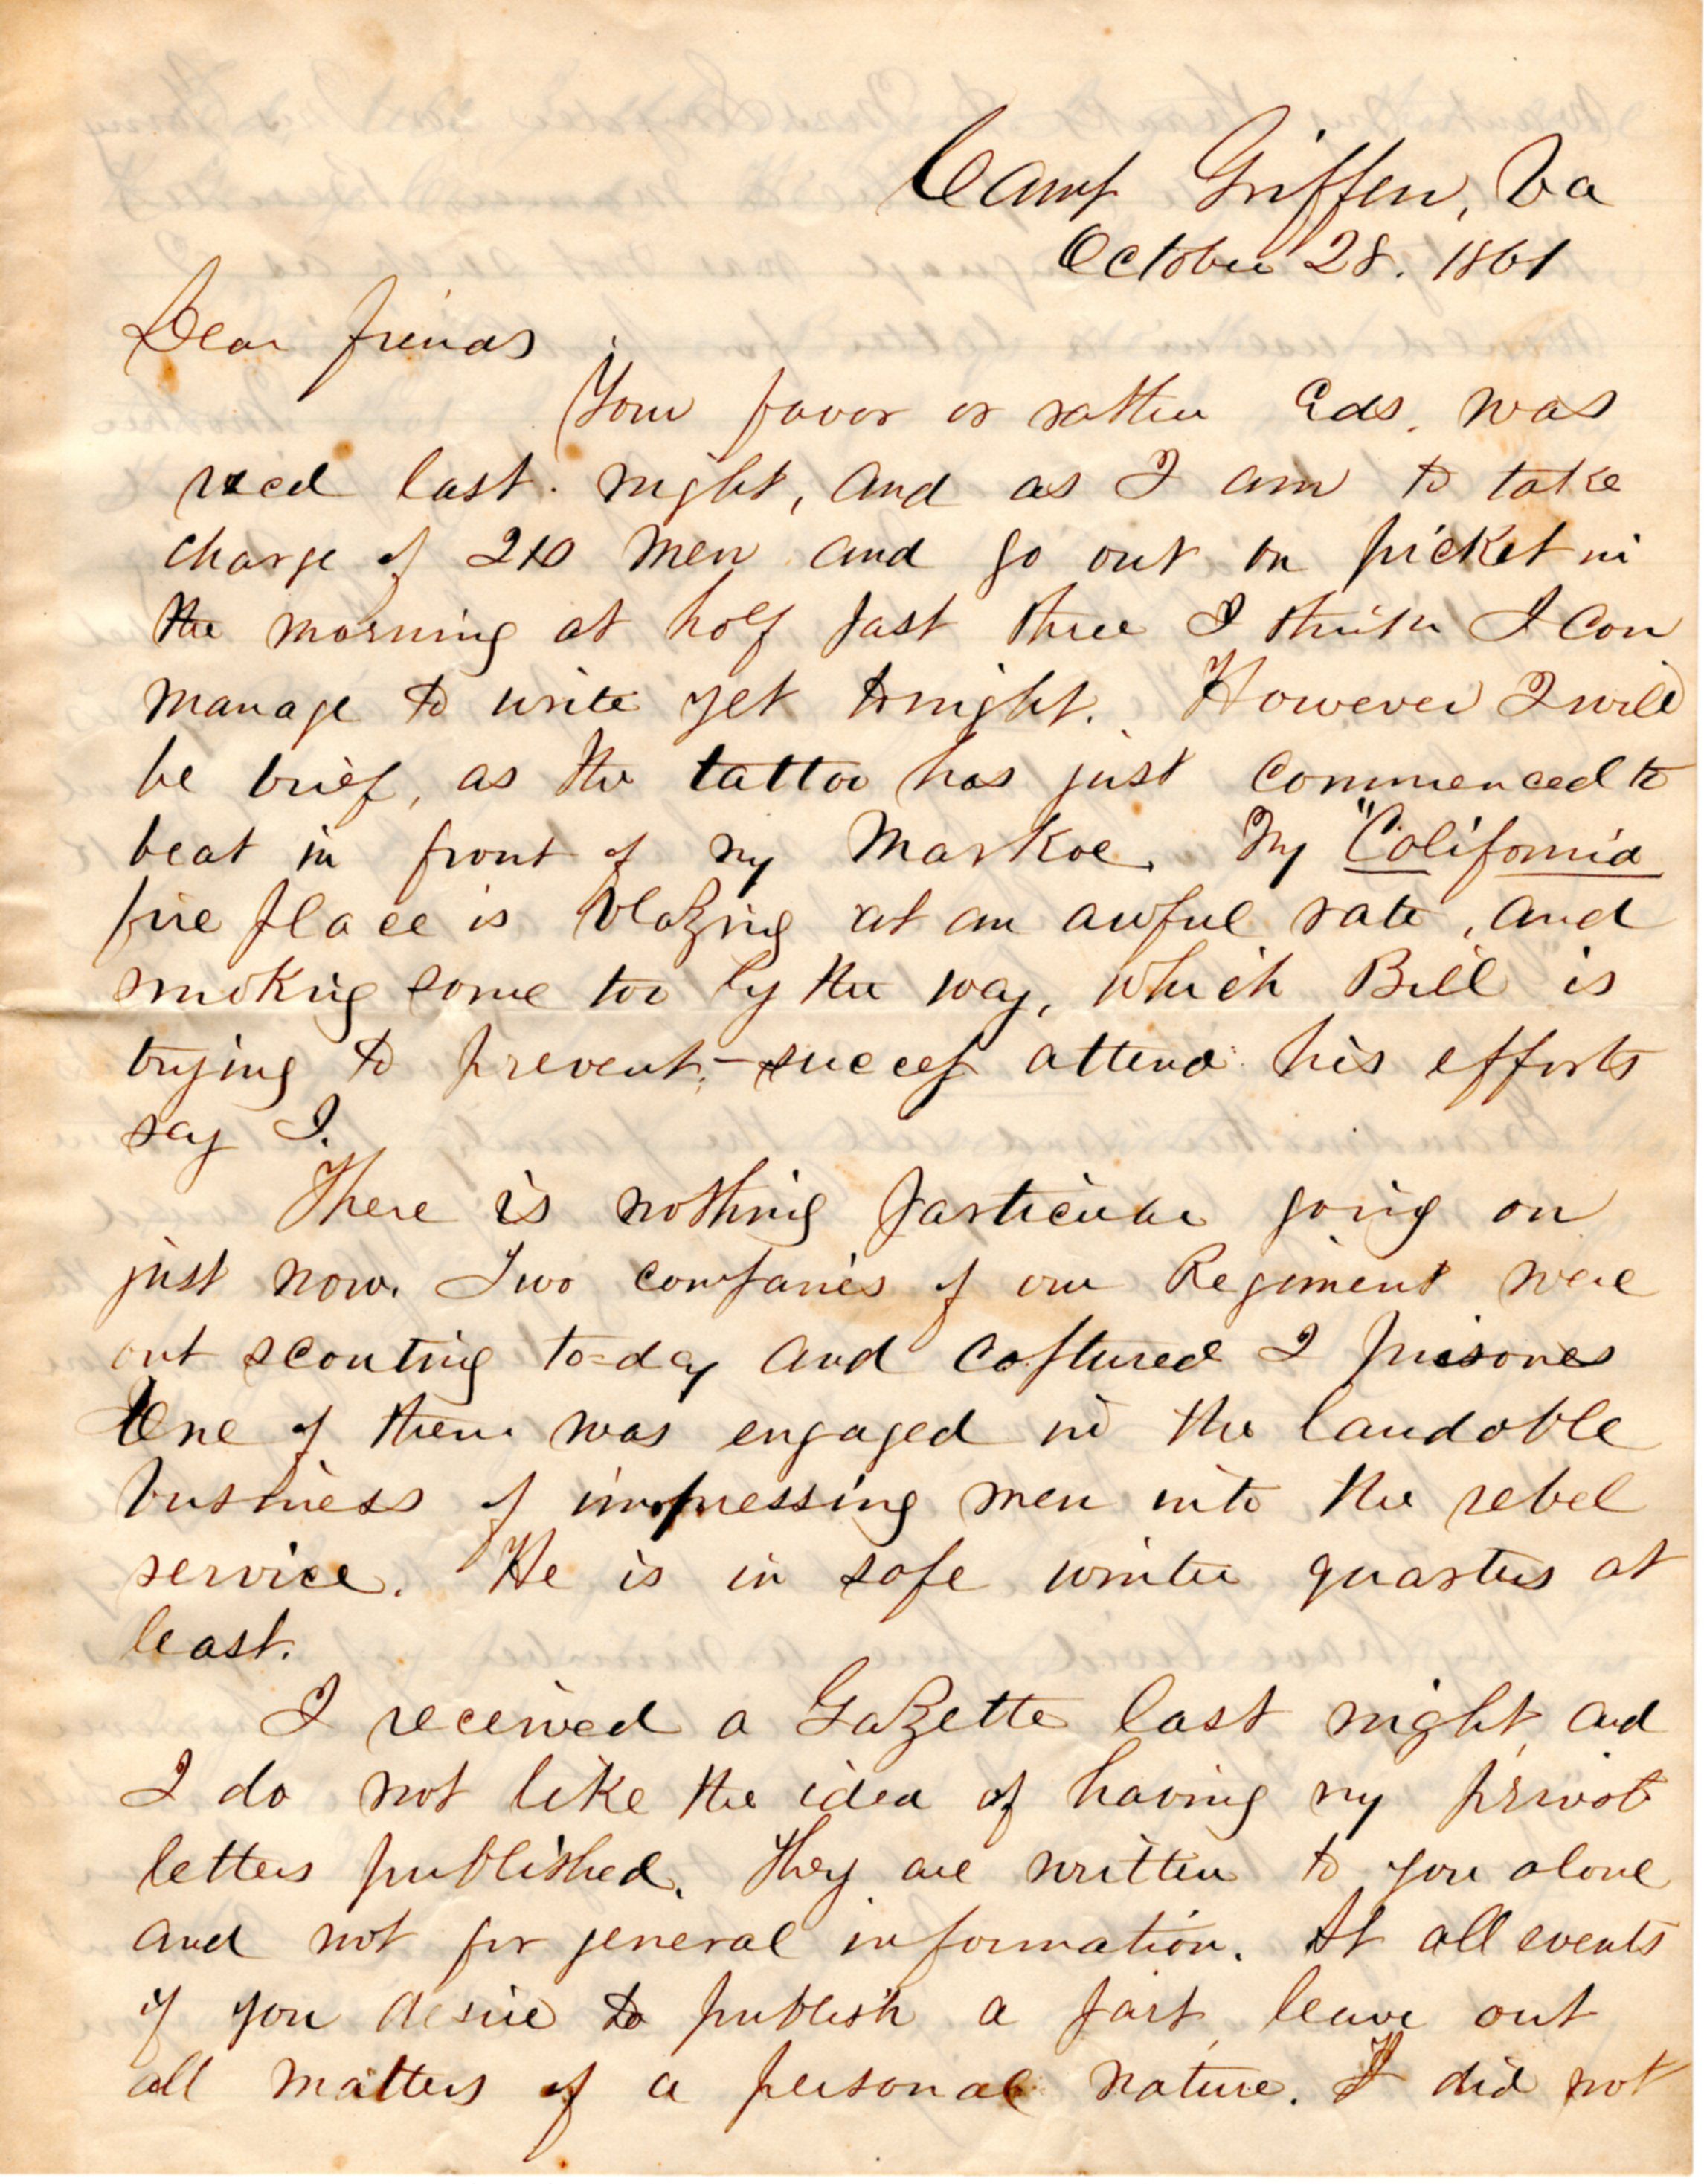 Camp Griffen, Va
October 28. 1861
Dear friends
Your favor or rather Eds. was
recd last night, and as I am to take
charge of 210 men and go out on picket in
the morning at half past three I think I can
manage to write yet tonight. However I will
be brief, as the tattoo has just commenced to
beat in front of my Markoe. My "California
fire place is blazing at an awful rate, and
smoking some too by the way, which Bill is
trying to prevent,—success attend his efforts
say I.
There is nothing particular going on
just now. Two companies of our Regiment were
out scouting to-day and captured 2 prisones
One of them was engaged in the laudable
business of impressing men into the rebel
service. He is in safe winter quarters at
least.
I received a Gazette last night, and
I do not like the idea of having my privat
letters published. They are written to you alone
and not for general information. At all events
if you desire to publish a part, leave out
all matters of a personal nature. I did not